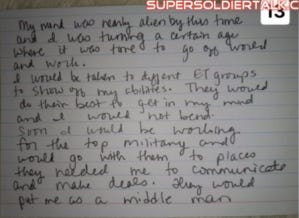 SUPERSOLDIERTALK.C
13
My mind was nearly alien by this time
and I was turning a certain age
where it was time to go off world
and work.
I would be taken to diffent ET groups
to show off my abilities. They would
do their best to get in my mind
and I would not bend.
Soon I would be working
for the top military and
would go with them to places
they needed me to communicate
and make deals. They would
put me as a middle man